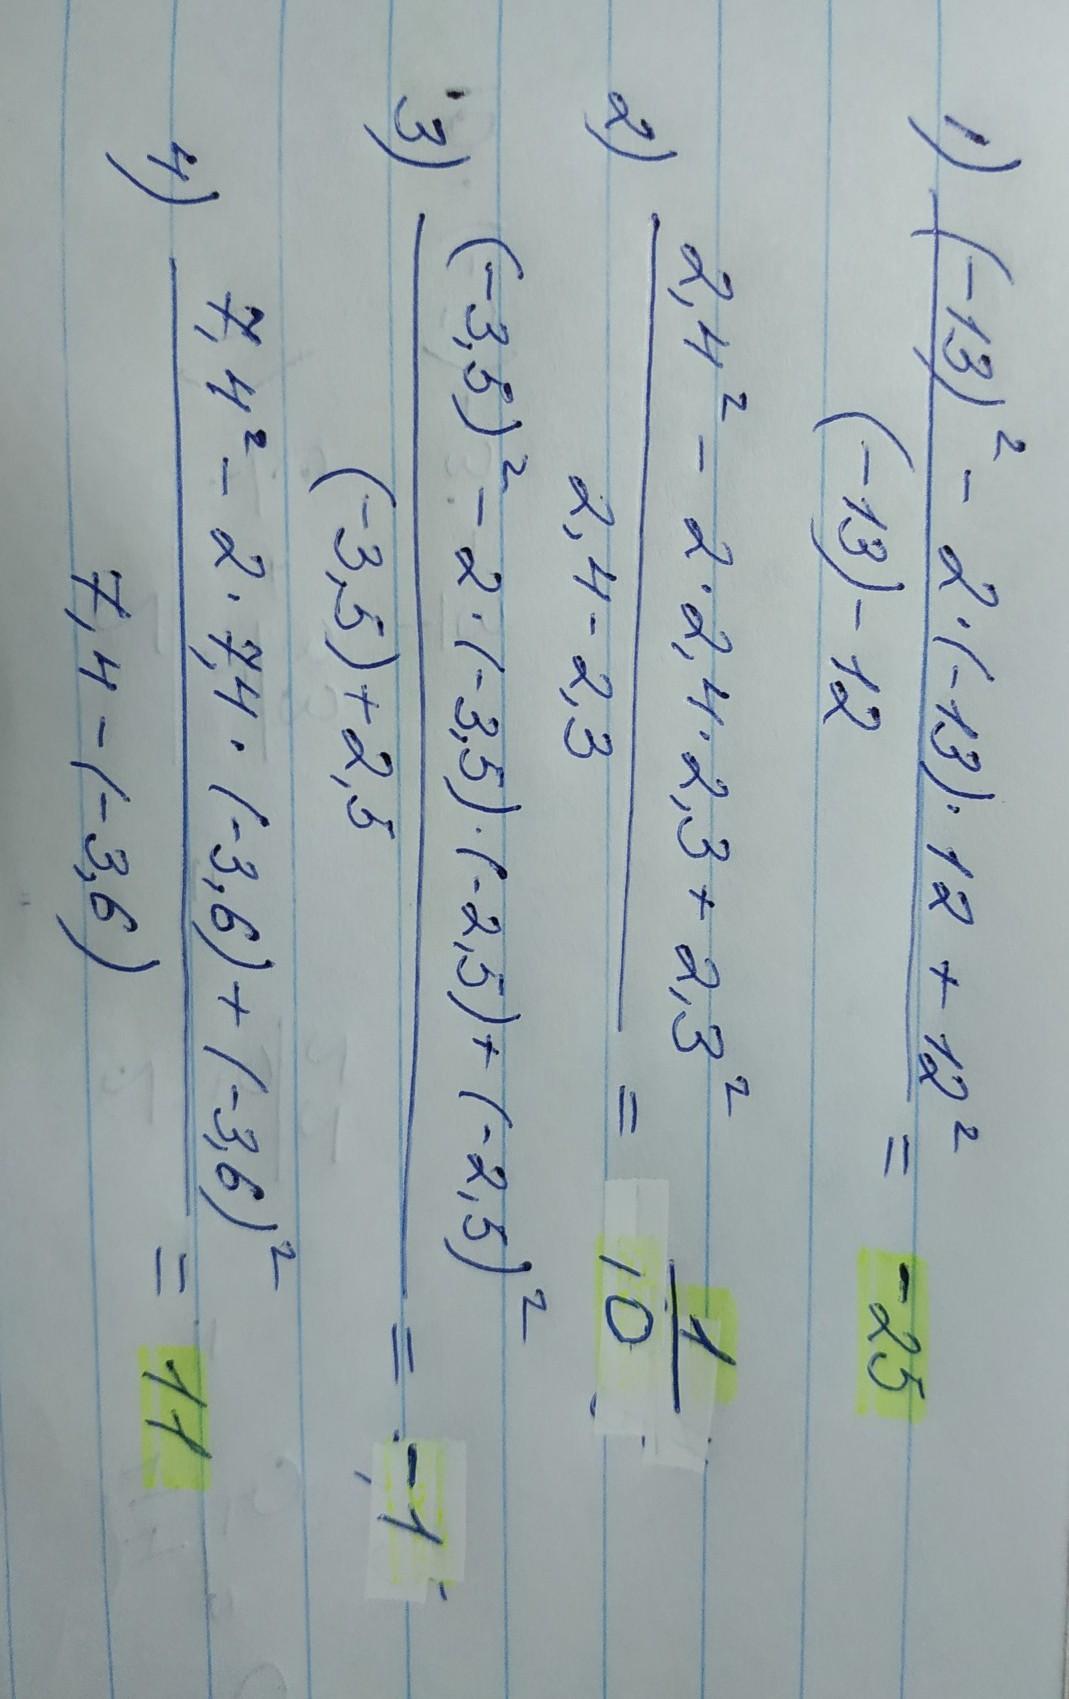 1) (-13)² - 2·(-13)·12 + 12² = -25
(-13) - 12
2) 2,4² - 2·2,4·2,3 + 2,3² = 1
2,4 - 2,3 10
3) (-3,5)² - 2·(-3,5)·(-2,5) + (-2,5)² = -1
(-3,5) + 2,5
4) 7,4² - 2·7,4·(-3,6) + (-3,6)² = 11
7,4 - (-3,6)